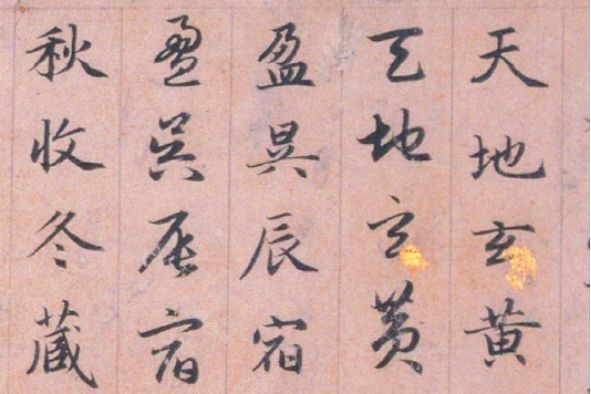 天地玄黄
天地玄黄
盈昃辰宿
盈昃辰宿
秋收冬藏